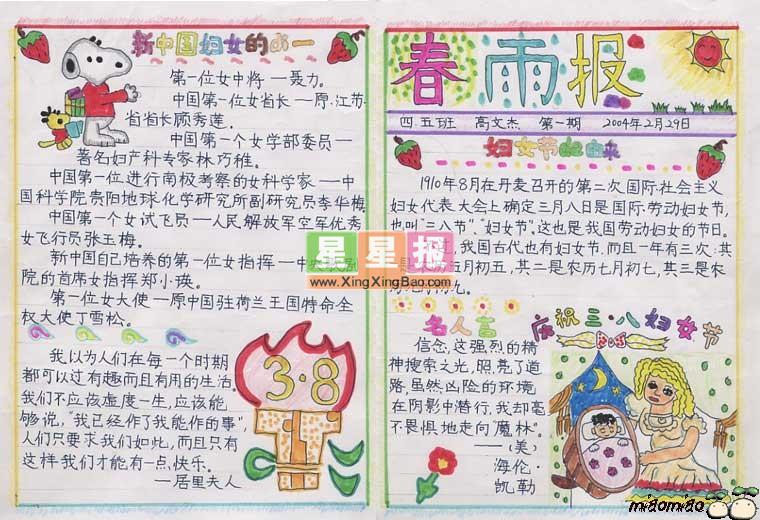 新中国妇女的第一
第一位女中将——聂力。
中国第一位女省长——原江苏
省省长顾秀莲。
中国第一个女学部委员——
著名妇产科专家林巧稚。
中国第一位进行南极考察的女科学家——中
国科学院贵阳地球化学研究所副研究员李华梅
中国第一个女试飞员——人民解放军空军优秀
女飞行员张玉梅。
新中国自己培养的第一位女指挥——中
院的首席女指挥郑小瑛。
第一位女大使——原中国驻荷兰王国特命全
权大使丁雪松。
我以为人们在每一个时期
都可以过有趣而且有用的生活
我们不应该虚度一生,应该能
够说,“我已经作了我能作的事”,
人们只要求我们如此,而且只有
这样我们才能有一点快乐。
——居里夫人
3·8
春雨报
四.五班 高文杰 第一期 2004年2月29日
妇女节的由来
1910年8月在丹麦召开的第二次国际社会主义
妇女代表大会上确定三月八日是国际劳动妇女节,
也叫“三八节”.“妇女节”。这也是我国劳动妇女的节日。
我国古代也有妇女节.而且一年有三次:其
五月初五,其二是农历七月初七,其三是农
名人言
信念,这强烈的精
神搜索之光,照亮了道
路,虽然凶险的环境
在阴影中潜行,我却毫
不畏惧地走向“魔林”。
——(美)
海伦·
凯勒
庆祝三·八妇女节
星星报
www.XingXingBao.com
miaomiao